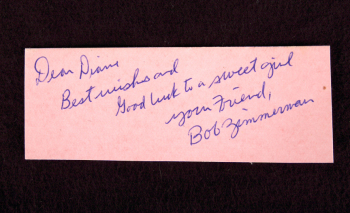 Dear Diane
Best wishes and
Good luck to a sweet girl
your Friend,
Bob Zimmerman